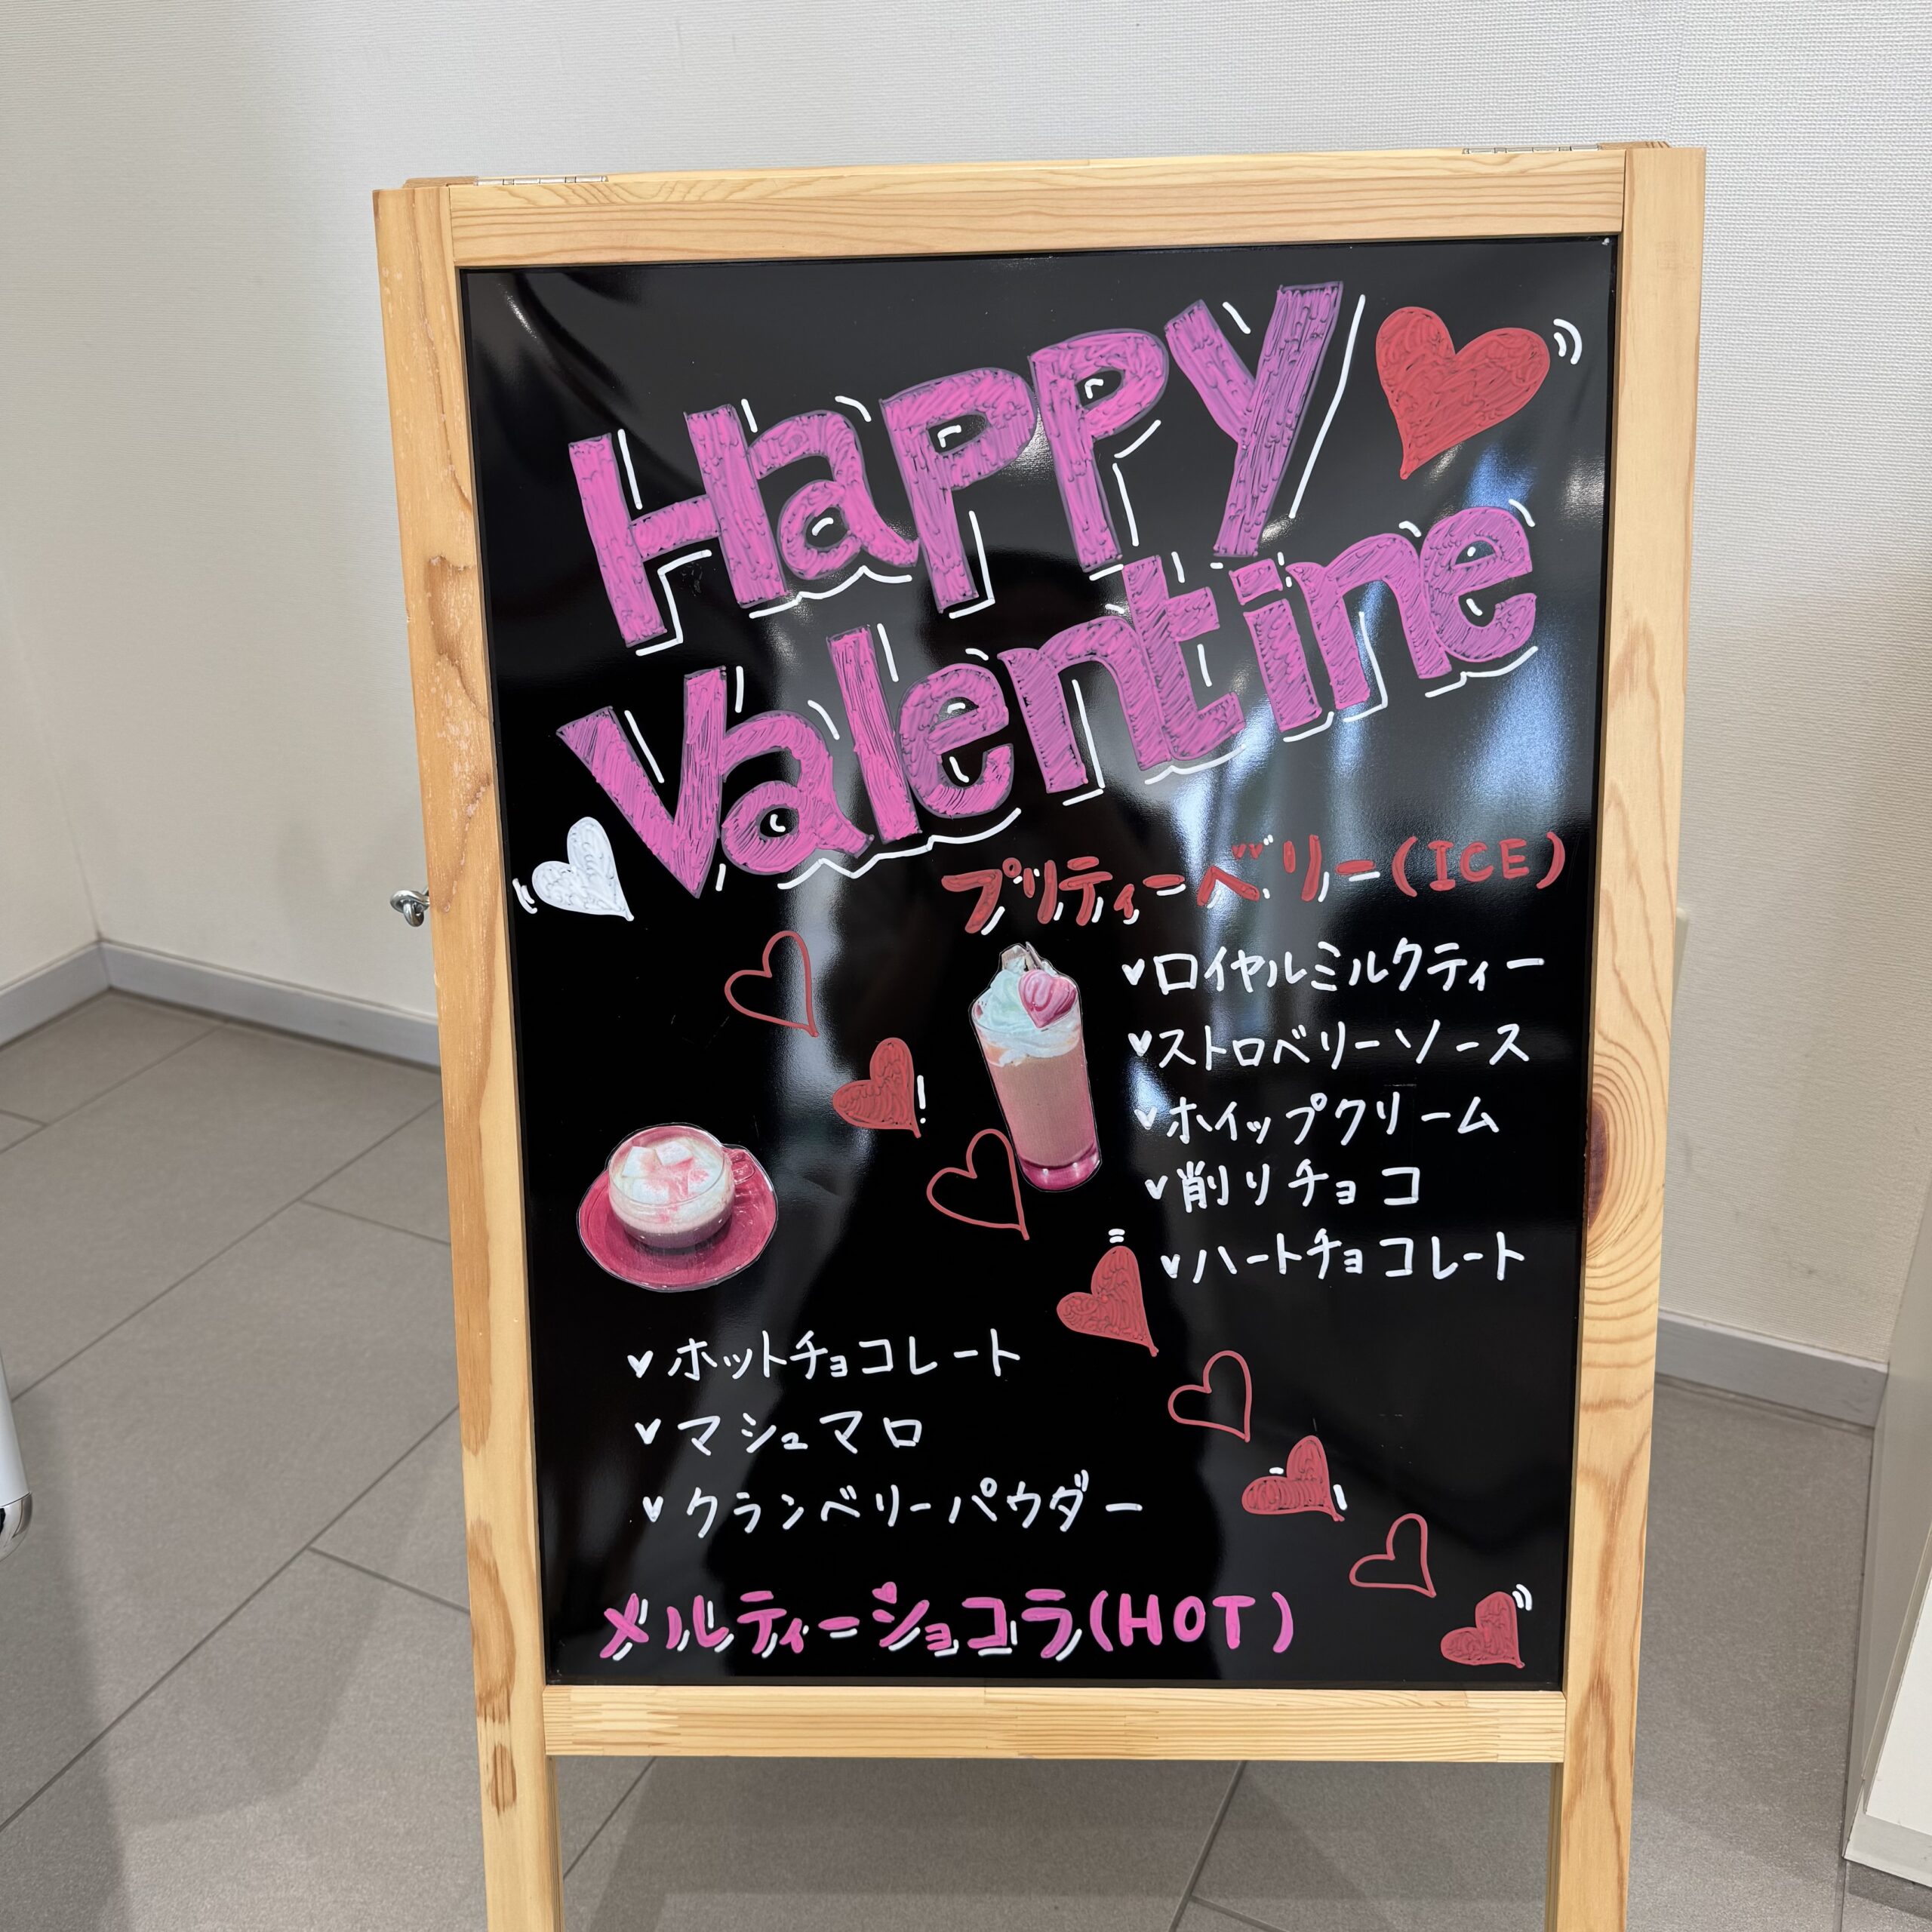 Happy
Valentine
プリティーベリー(ICE)
ロイヤルミルクティー
ストロベリーソース
ホイップクリーム
削りチョコ
ハートチョコレート
ホットチョコレート
マシュマロ
クランベリーパウダー
メルティーショコラ(HOT)